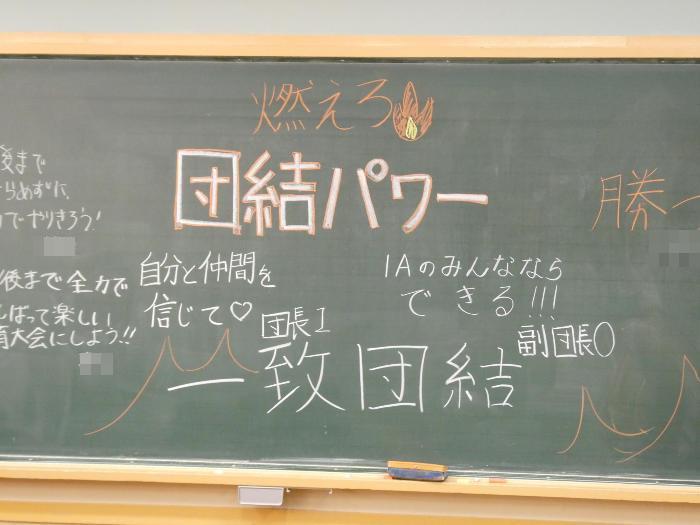 燃えろ
団結パワー
勝
後まで
らめずに、
でやりきろう！
自分と仲間を
信じて♡
団長I
1Aのみんななら
できる!!!
副団長O
後まで全力で
ばって楽しい
大会にしよう!!
一致団結